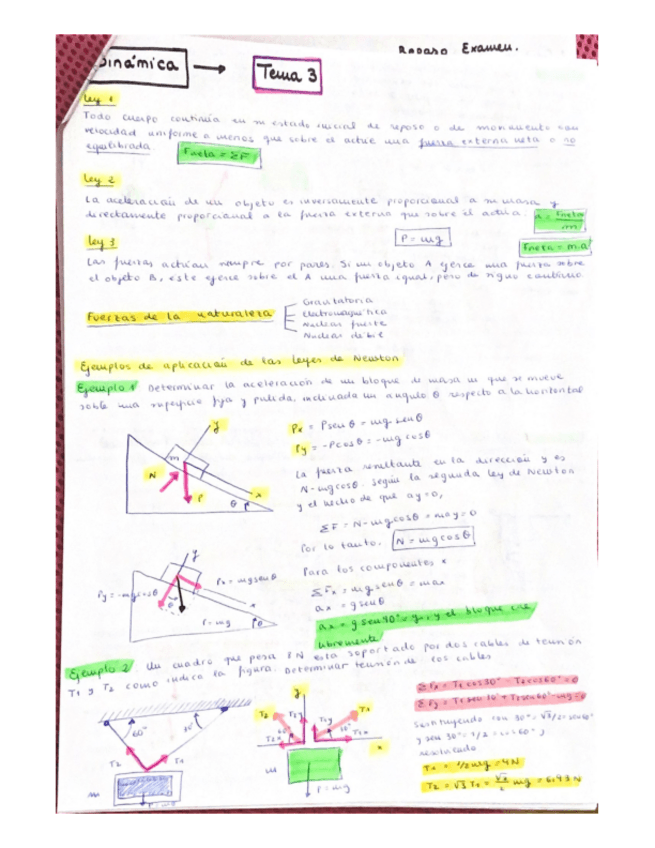 Repaso Examen.
Dinámica → Tema 3
Ley 1
Todo cuerpo continúa en su estado inicial de reposo o de movimiento con
velocidad uniforme a menos que sobre él actúe una fuerza externa neta o no
equilibrada. Fneta = ΣF
Ley 2
La aceleración de un objeto es inversamente proporcional a su masa y
directamente proporcional a la fuerza externa que sobre él actúa. a = Fneta/m
Ley 3
P = mg
Fneta = m.a
Las fuerzas actúan siempre por pares. Si un objeto A ejerce una fuerza sobre
el objeto B, este ejerce sobre el A una fuerza igual, pero de signo contrario.
Fuerzas de la naturaleza
Gravitatoria
Electromagnética
Nuclear fuerte
Nuclear débil
Ejemplos de aplicación de las leyes de Newton
Ejemplo 1 Determinar la aceleración de un bloque de masa m que se mueve
sobre una superficie fija y pulida, inclinada un ángulo θ respecto a la horizontal
y
m
N
P
x
θ
Px = Psenθ = mgsenθ
Py = -Pcosθ = -mgcosθ
La fuerza resultante en la dirección y es
N-mgcosθ. Según la segunda ley de Newton
y el hecho de que ay=0,
ΣF = N-mgcosθ = may = 0
Por lo tanto, N = mgcosθ
Para los componentes x
ΣFx = mgsenθ = max
ax = gsenθ
ax = g sen90° = g, y el bloque cae
libremente
y
Px = mgsenθ
Py = -mgcosθ
θ
x
P = mg
θ
Ejemplo 2 Un cuadro que pesa 8N está soportado por dos cables de tensión
T1 y T2 como indica la figura. Determinar tensión de los cables
60°
30°
T2
T1
m
P = mg
y
T2
T2y
T1y
T1
60°
30°
T2x
T1x
x
m
P = mg
ΣFx = T1cos30° - T2cos60° = 0
ΣFy = T1sen30° + T2sen60° - mg = 0
Sustituyendo cos 30° = √3/2 = sen60°
y sen 30° = 1/2 = cos 60° y
resolviendo
T1 = 1/2 mg = 4N
T2 = √3 T1 = √3/2 mg = 6,93 N